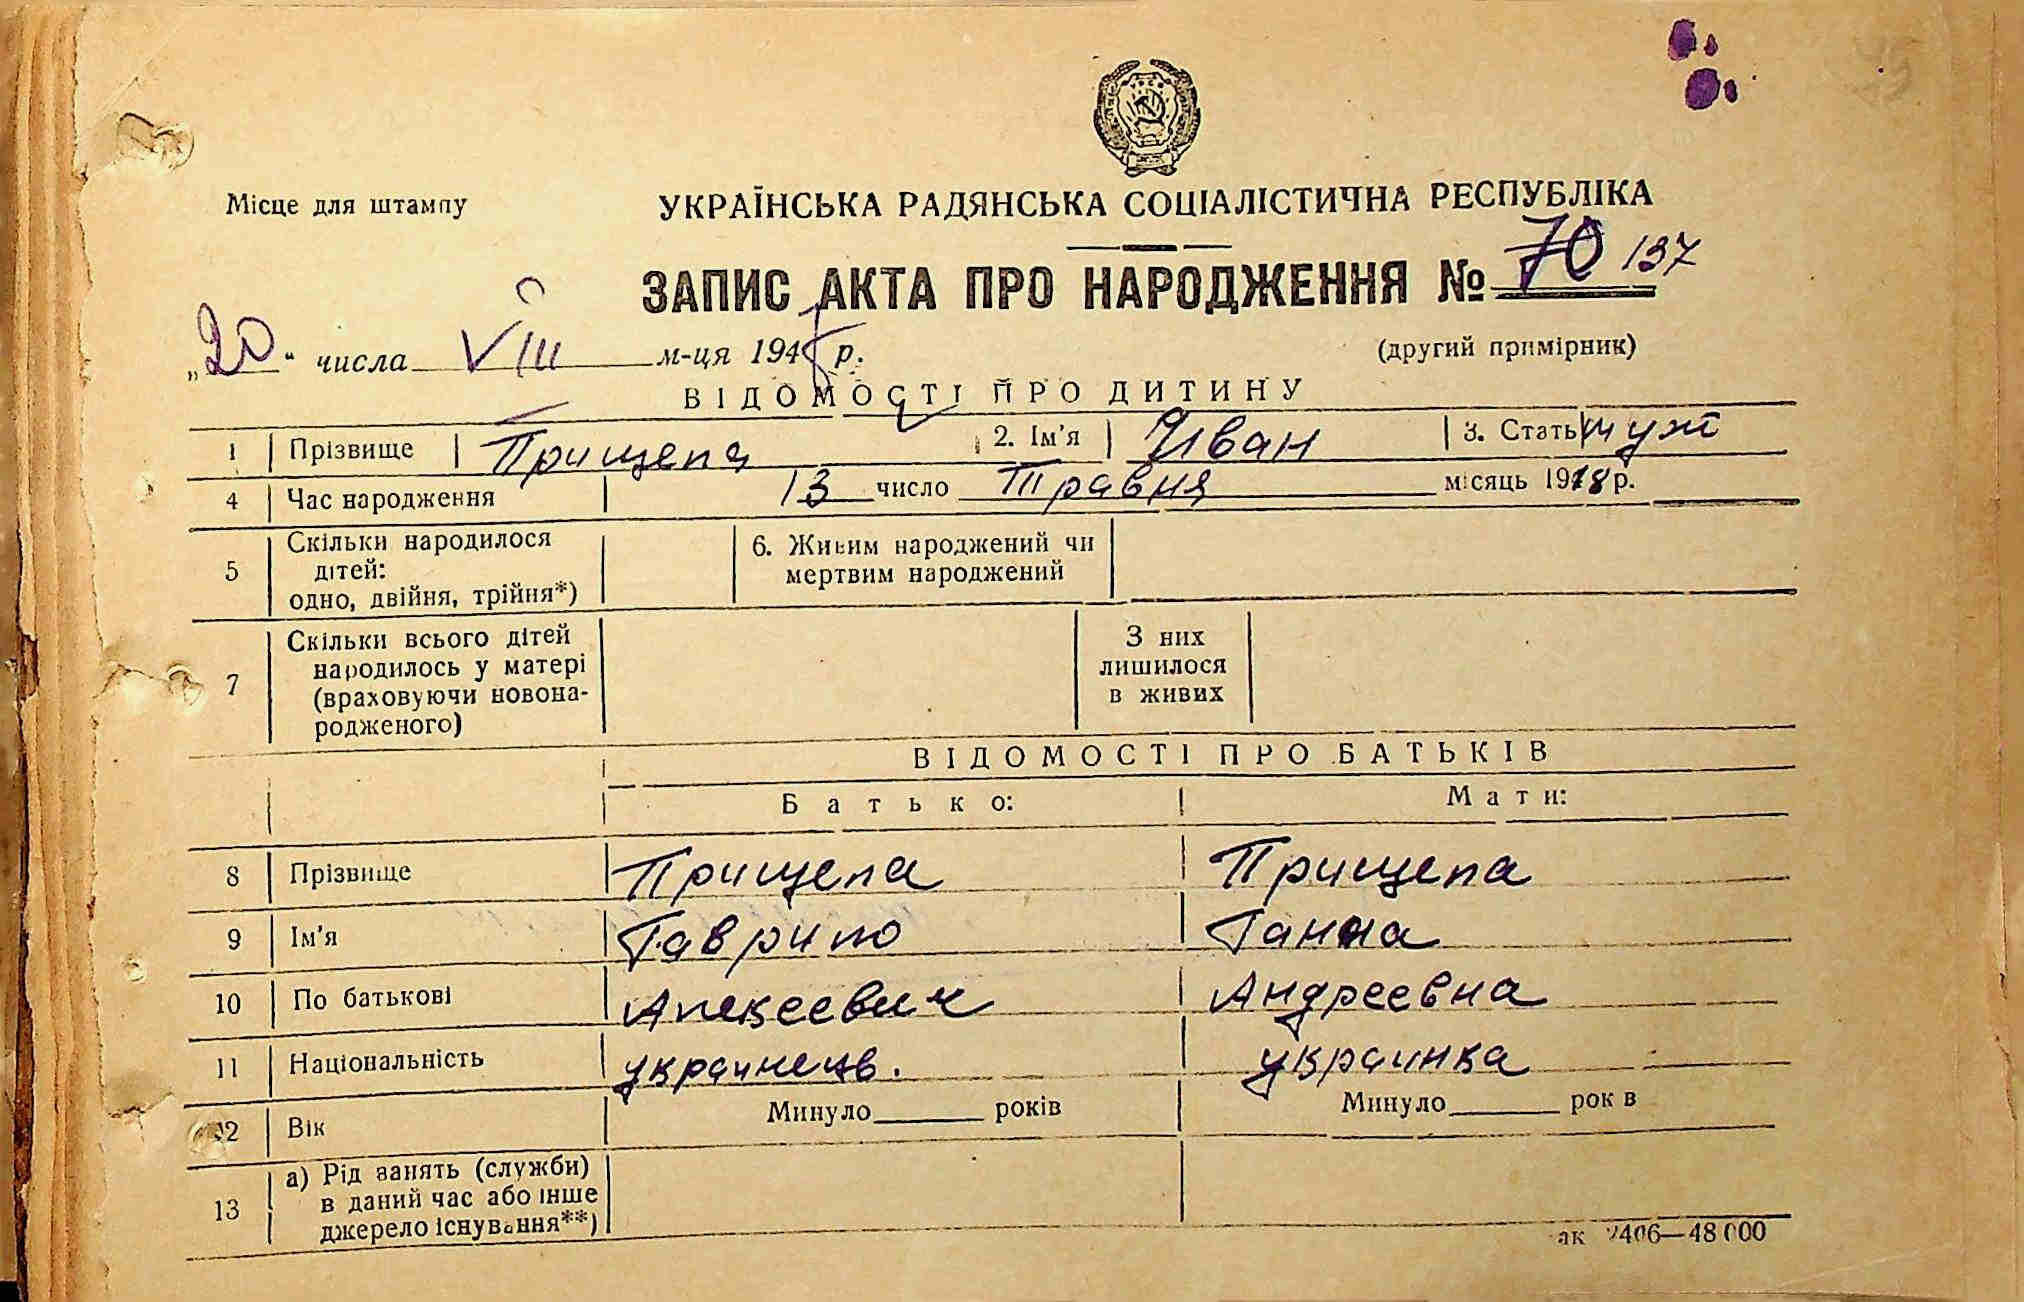 Місце для штампу
УКРАЇНСЬКА РАДЯНСЬКА СОЦІАЛІСТИЧНА РЕСПУБЛІКА
ЗАПИС АКТА ПРО НАРОДЖЕННЯ № 70 137
„20“ числа VIII м-ця 194 р.
(другий примірник)
ВІДОМОСТІ ПРО ДИТИНУ
1 Прізвище Прищепа 2. Ім'я Иван 3. Стать муж
4 Час народження 13 число Травня місяць 1918 р.
5 Скільки народилося дітей: одно, двійня, трійня*) 6. Живим народжений чи мертвим народжений
7 Скільки всього дітей народилось у матері (враховуючи новона-родженого) З них лишилося в живих
ВІДОМОСТІ ПРО БАТЬКІВ
Батько: Мати:
8 Прізвище Прищепа Прищепа
9 Ім'я Гаврило Ганна
10 По батькові Алексеевич Андреевна
11 Національність украинець. украинка
12 Вік Минуло років Минуло рок в
13 а) Рід занять (служби) в даний час або інше джерело існування**)
ак 2406—48 000